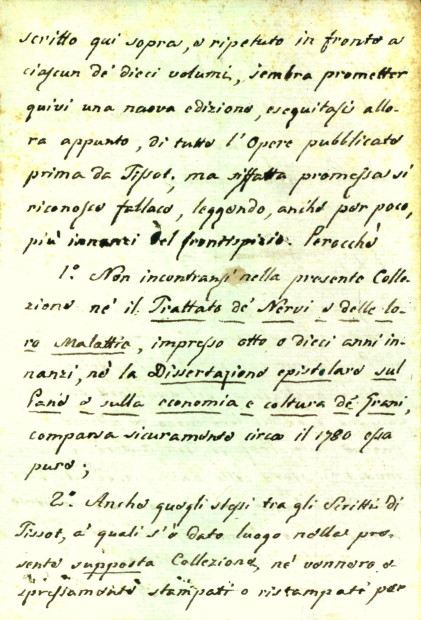 scritto qui sopra, e ripetuto in fronte a
ciascun de' dieci volumi, sembra prometter
quivi una nuova edizione, eseguitasi allo-
ra appunto, di tutte l'Opere pubblicate
prima da Tissot; ma siffatta promessa si
riconosce fallace, leggendo, anche per poco,
più innanzi del frontispizio. Perocchè
1.º Non incontransi nella presente Colle-
zione nè il Trattato de' Nervi e delle lo-
ro Malattie, impresso otto o dieci anni in-
nanzi, nè la Dissertazione epistolare sul
Pane e sulla economia e coltura de' Grani,
comparsa sicuramente circa il 1780 essa
pure;
2.º Anche quegli stessi tra gli Scritti di
Tissot, a' quali s'è dato luogo nella pre-
sente supposta Collezione, nè vennero e
spressamente stampati o ristampati per